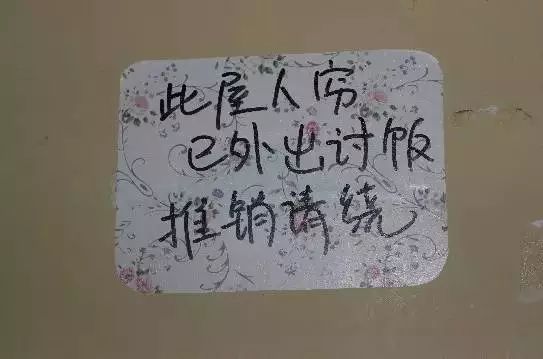 此屋人穷
已外出讨饭
推销请绕